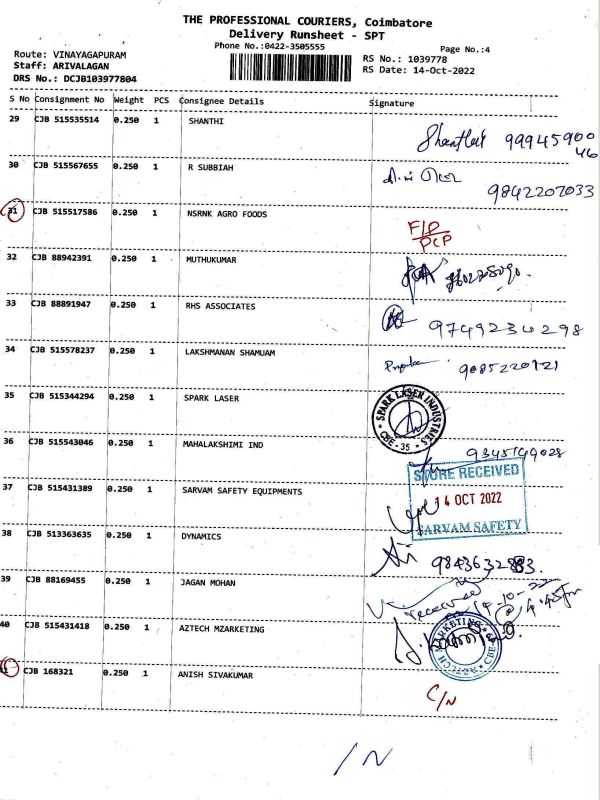 THE PROFESSIONAL COURIERS, Coimbatore
Delivery Runsheet - SPT
Phone No.:0422-3505555
Page No.:4
Route: VINAYAGAPURAM
RS No.: 1039778
Staff: ARIVALAGAN
RS Date: 14-Oct-2022
DRS No.: DCJB103977804
S No Consignment No Weight PCS Consignee Details Signature
29 CJB 515535514 0.250 1 SHANTHI
Shanthi 99945900
46
30 CJB 515567655 0.250 1 R SUBBIAH
9842207033
31 CJB 515517586 0.250 1 NSRNK AGRO FOODS
F/P
PCP
32 CJB 88942391 0.250 1 MUTHUKUMAR
33 CJB 88891947 0.250 1 RHS ASSOCIATES
9749234298
34 CJB 515578237 0.250 1 LAKSHMANAN SHAMUAM
35 CJB 515344294 0.250 1 SPARK LASER
SPARK LASER INDUSTRIES
CBE - 35
36 CJB 515543046 0.250 1 MAHALAKSHIMI IND
9345149028
37 CJB 515431389 0.250 1 SARVAM SAFETY EQUIPMENTS
STORE RECEIVED
14 OCT 2022
SARVAM SAFETY
38 CJB 513363635 0.250 1 DYNAMICS
39 CJB 88169455 0.250 1 JAGAN MOHAN
received 14-10-22
@ 4:45pm
40 CJB 515431418 0.250 1 AZTECH MZARKETING
AZTECH MARKETING
CBE
41 CJB 168321 0.250 1 ANISH SIVAKUMAR
C/N
/ N